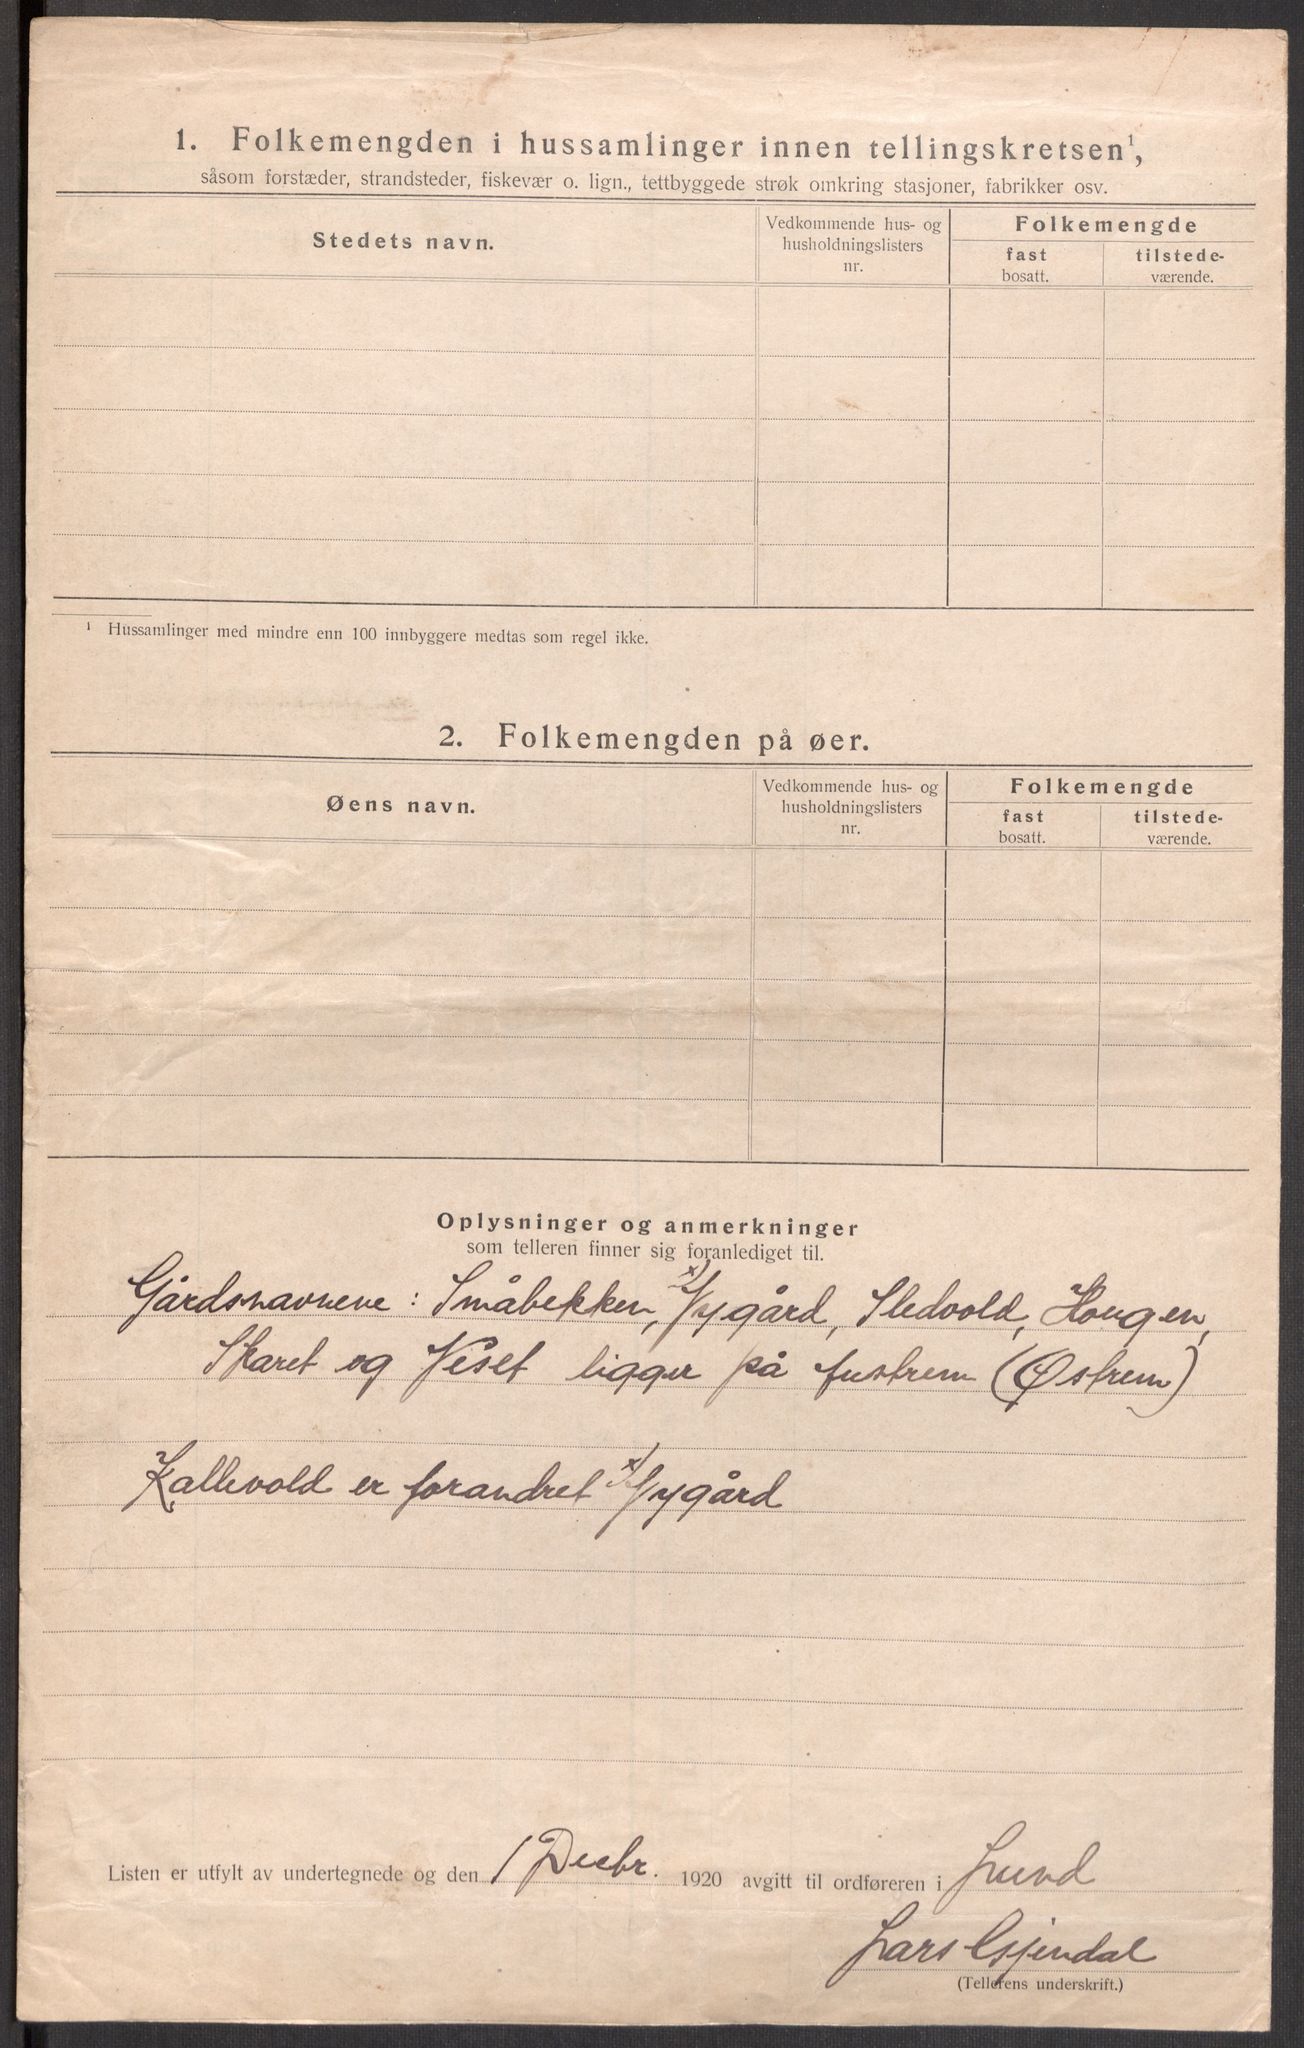 1. Folkemengden i hussamlinger innen tellingskretsen¹,
såsom forstæder, strandsteder, fiskevær o. lign., tettbyggede strøk omkring stasjoner, fabrikker osv.
Stedets navn.
Vedkommende hus- og
husholdningslisters
nr.
Folkemengde
fast
bosatt.
tilstede-
værende.
¹ Hussamlinger med mindre enn 100 innbyggere medtas som regel ikke.
2. Folkemengden på øer.
Øens navn.
Vedkommende hus- og
husholdningslisters
nr.
Folkemengde
fast
bosatt.
tilstede-
værende.
Oplysninger og anmerkninger
som telleren finner sig foranlediget til.
Gårdsnavnene: Småbekken, x) Nygård, Sledvold, Hougen,
Skaret og Veset ligger på Austrem (Østrem)
Kallevold er forandret x) Nygård
Listen er utfylt av undertegnede og den 1 Decbr. 1920 avgitt til ordføreren i Lund
Lars Gjendal
(Tellerens underskrift.)